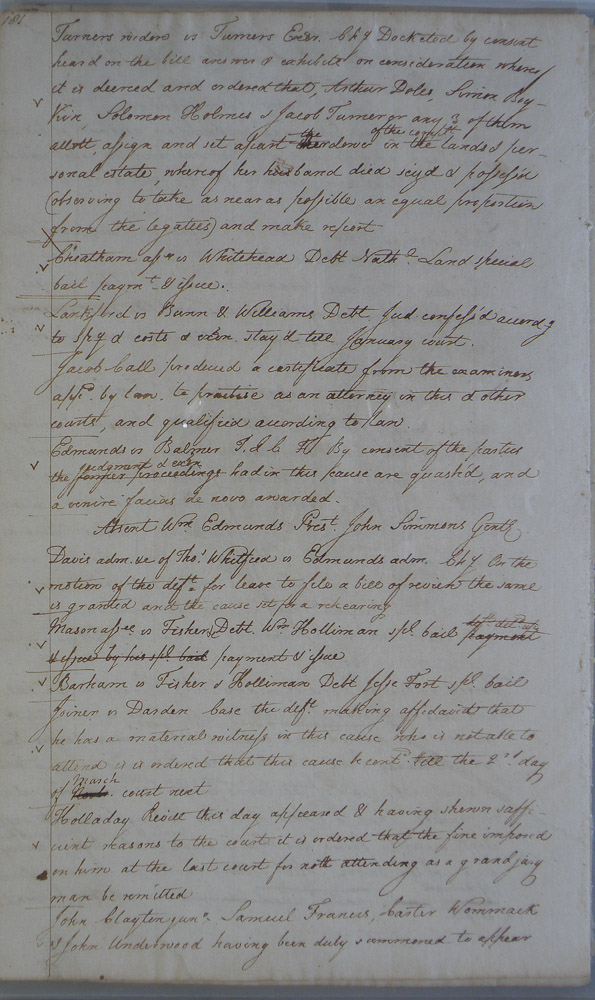 181
Turners widow vs Turners Exor. Chy Docketed by consent
heard on the bill answer & exhibits on consideration whereof
it is decreed and ordered that, Arthur Doles, Simon Boy-
kin, Solomon Holmes & Jacob Turner or any 3 of them
allott, assign and set apart the dower of the complt in the lands & per-
sonal estate, whereof her husband died seiz'd & possess'd
(observing to take as near as possible an equal proportion
from the legatees) and make report
Cheatham asse vs Whitehead Debt Nathl. Land special
bail paymt. & issue.
Lankford vs Bunn & Williams Debt Jud. confess'd accordg
to spy & costs & exon. stay'd till January court.
Jacob Call produced a certificate from the examiners
appd. by law. to practise as an attorney in this & other
courts, and qualified according to law.
Edmunds vs Balmer By consent of the parties
the judgment & exon former proceedings had in this cause are quash'd, and
a venire facias de novo awarded.
Absent Wm. Edmunds Prest. John Simmons Gentl
Davis adm. &c of Thos. Whitfeed vs Edmunds adm. Chy On the
motion of the deft. for leave to file a bill of review the same
is granted and the cause set for a rehearing
Mason assee vs Fisher Debt. Wm Holliman spl. bail payment
& issue by his spl. bail payment & issue
Barham vs Fisher & Holliman Debt Jesse Fort spl. bail
Joiner vs Darden Case the deft. making affidavit that
he has a material witness in this cause who is not able to
attend it is ordered that this cause be contd. till the 2nd day
of March court next
Holladay Revill this day appeared & having shewn suffi-
cient reasons to the court it is ordered that the fine imposed
on him at the last court for not attending as a grand jury
man be remitted
John Clayton junr. Samuel Francis, Carter Wommack
& John Underwood having been duly summoned to appear